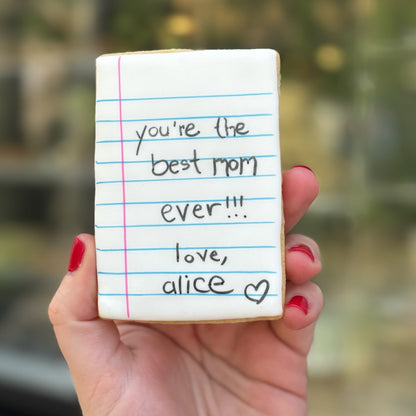 you're the
best mom
ever!!!
love,
alice ♡